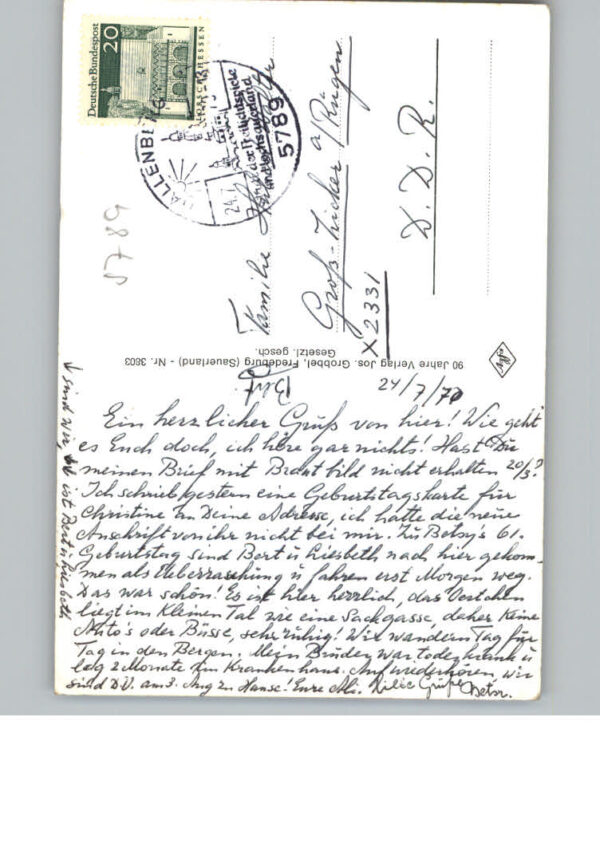 Deutsche Bundespost
20
LORSCH/HESSEN
HALLENBERG
24.7.
5789
5789
Familie
Groß-Zicker a/Rügen
X2331
D.D.R.
90 Jahre Verlag Jos. Grobbel, Fredeburg (Sauerland) - Nr. 3803
Gesetzl. gesch.
24/7/70
Ein herzlicher Gruß von hier! Wie geht
es Euch doch, ich höre gar nichts! Hast Du
meinen Brief mit Brautbild nicht erhalten 20/3?
Ich schrieb gestern eine Geburtstagskarte für
Christine an Deine Adresse, ich hatte die neue
Anschrift von ihr nicht bei mir. Zu Betsy's 61.
Geburtstag sind Bert u Liesbeth nach hier gekom-
men als Ueberraschung u fahren erst Morgen weg.
Das war schön! Es ist hier herrlich, das
liegt im Kleinen Tal wie eine Sackgasse, daher Keine
Auto's oder Büsse, sehr ruhig! Wir wandern Tag für
Tag in den Bergen. Mein Bruder war todeskrank u
lag 2 Monate im Krankenhaus. Auf wiederhören, wir
sind D.V. am 3. Aug zu Hause! Eure Ali. Grüße Betsy.
ist Bert u Liesbeth